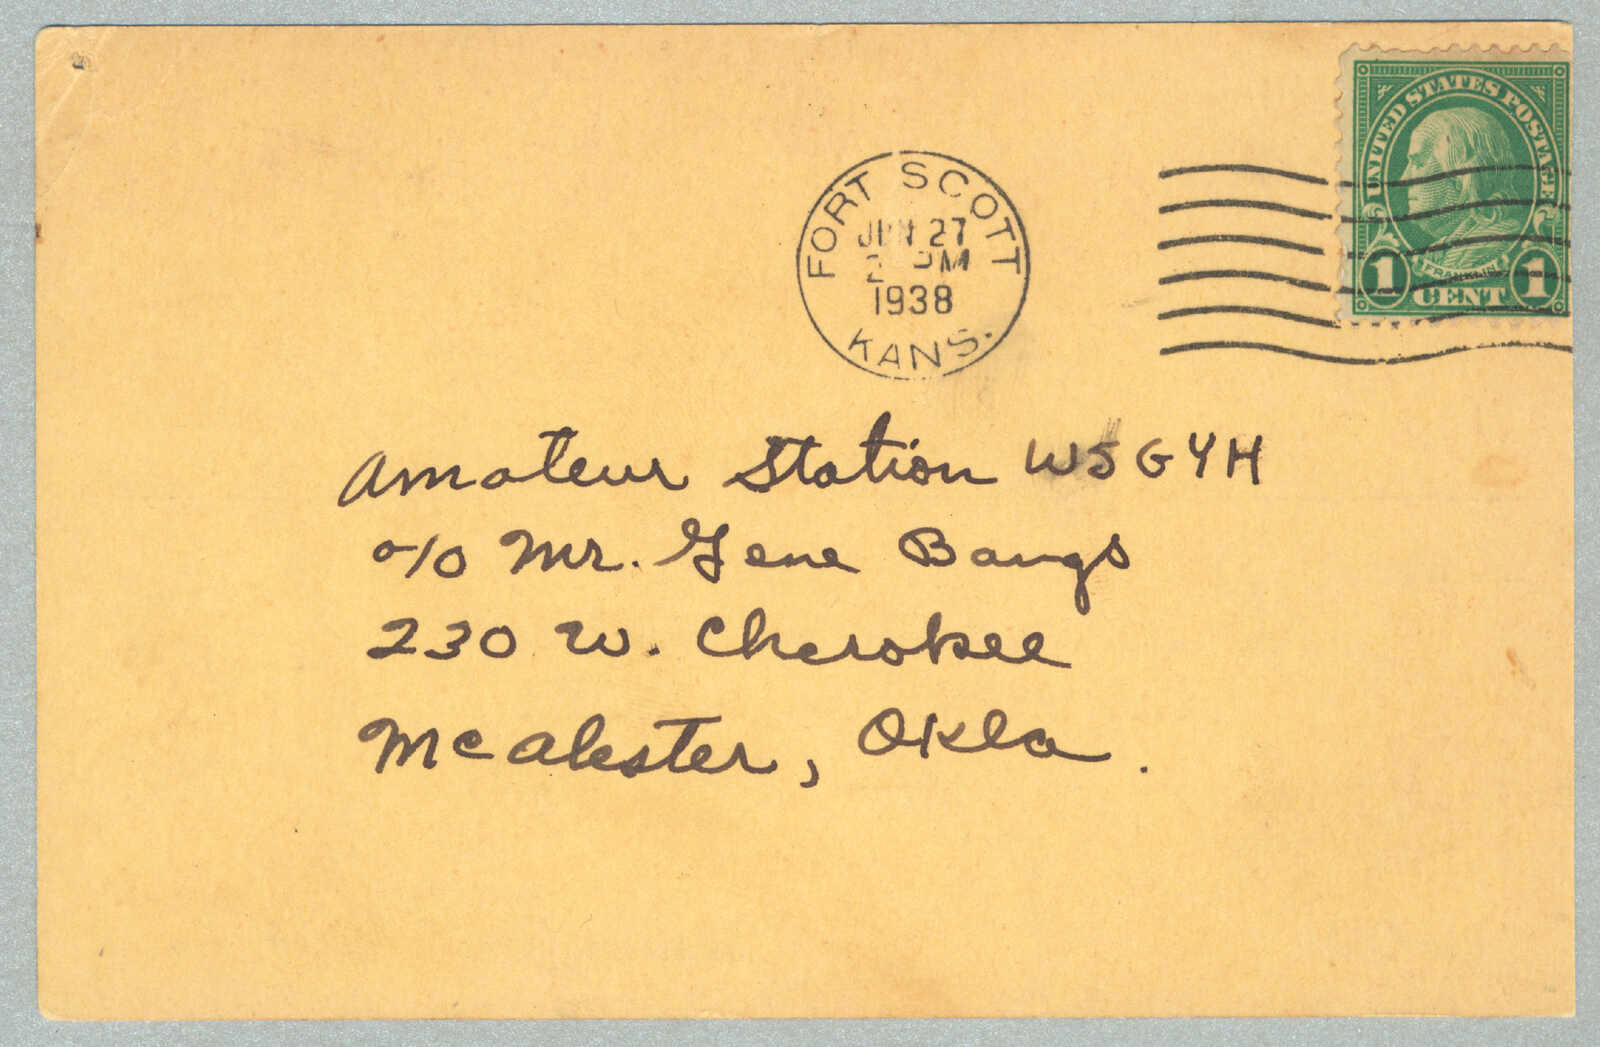 UNITED STATES POSTAGE
FRANKLIN
1 CENT 1
FORT SCOTT
JUN 27
PM
1938
KANS.
Amateur Station W5GYH
c/o Mr. Gene Bangs
230 W. Cherokee
McAlester, Okla.